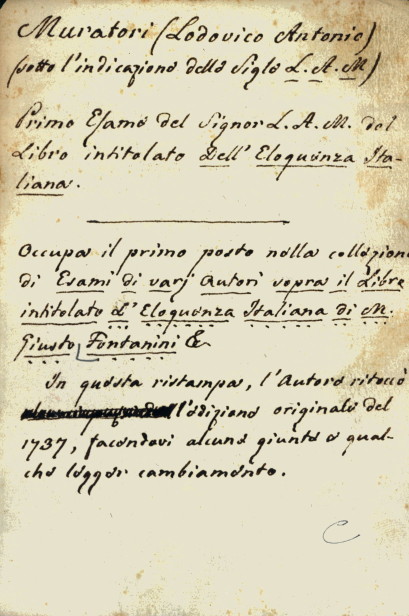 Muratori (Lodovico Antonio)
(sotto l'indicazione delle Sigle L. A. M)
Primo Esame del Signor L. A. M. del
Libro intitolato Dell' Eloquenza Ita-
liana.
Occupa il primo posto nella collezione
di Esami di varj Autori sopra il Libro
intitolato L'Eloquenza Italiana di M.
Giusto Fontanini &
In questa ristampa, l'Autore ritoccò
l'edizione originale del
1737, facendovi alcune giunte e qual-
che legger cambiamento.
C